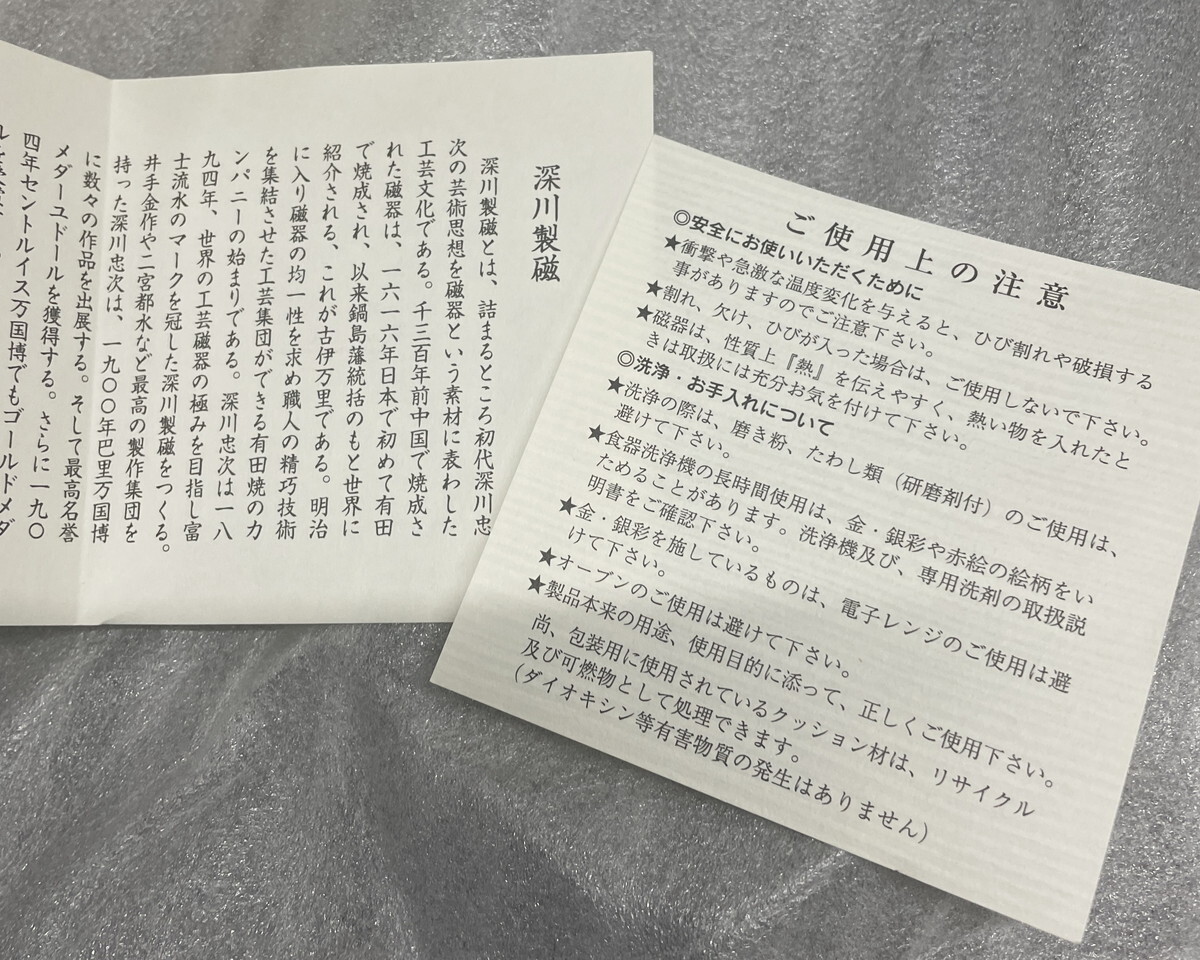 深川製磁
深川製磁とは、詰まるところ初代深川忠
次の芸術思想を磁器という素材に表わした
工芸文化である。千三百年前中国で焼成さ
れた磁器は、一六一六年日本で初めて有田
で焼成され、以来鍋島藩統括のもと世界に
紹介される、これが古伊万里である。明治
に入り磁器の均一性を求め職人の精巧技術
を集結させた工芸集団ができる有田焼のカ
ンパニーの始まりである。深川忠次は一八
九四年、世界の工芸磁器の極みを目指し富
士流水のマークを冠した深川製磁をつくる。
井手金作や二宮都水など最高の製作集団を
持った深川忠次は、一九〇〇年巴里万国博
に数々の作品を出展する。そして最高名誉
メダーユドールを獲得する。さらに一九〇
四年セントルイス万国博でもゴールドメダ
ご使用上の注意
◎安全にお使いいただくために
★衝撃や急激な温度変化を与えると、ひび割れや破損する
事がありますのでご注意下さい。
★割れ、欠け、ひびが入った場合は、ご使用しないで下さい。
★磁器は、性質上『熱』を伝えやすく、熱い物を入れたと
きは取扱には充分お気を付けて下さい。
◎洗浄・お手入れについて
★洗浄の際は、磨き粉、たわし類（研磨剤付）のご使用は、
避けて下さい。
★食器洗浄機の長時間使用は、金・銀彩や赤絵の絵柄をい
ためることがあります。洗浄機及び、専用洗剤の取扱説
明書をご確認下さい。
★金・銀彩を施しているものは、電子レンジのご使用は避
けて下さい。
★オーブンのご使用は避けて下さい。
★製品本来の用途、使用目的に添って、正しくご使用下さい。
尚、包装用に使用されているクッション材は、リサイクル
及び可燃物として処理できます。
（ダイオキシン等有害物質の発生はありません）